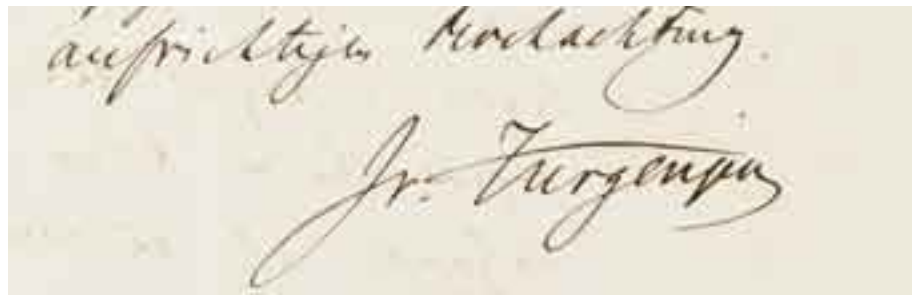 aufrichtiger Hochachtung.
Iv. Turgenjew